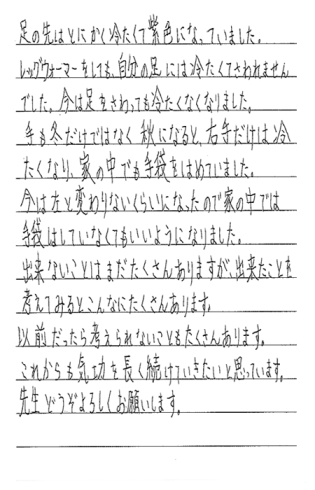 足の先はとにかく冷たくて紫色になっていました。
レッグウォーマーをしても、自分の足には冷たくてさわれません
でした。今は足をさわっても冷たくなくなりました。
手も冬だけではなく秋になると、右手だけは冷
たくなり、家の中でも手袋をはめていました。
今は左と変わりないくらいになったので家の中では
手袋はしていなくてもいいようになりました。
出来ないことはまだたくさんありますが、出来たことを
考えてみるとこんなにたくさんあります。
以前だったら考えられないこともたくさんあります。
これからも気功を長く続けていきたいと思っています。
先生どうぞよろしくお願いします。